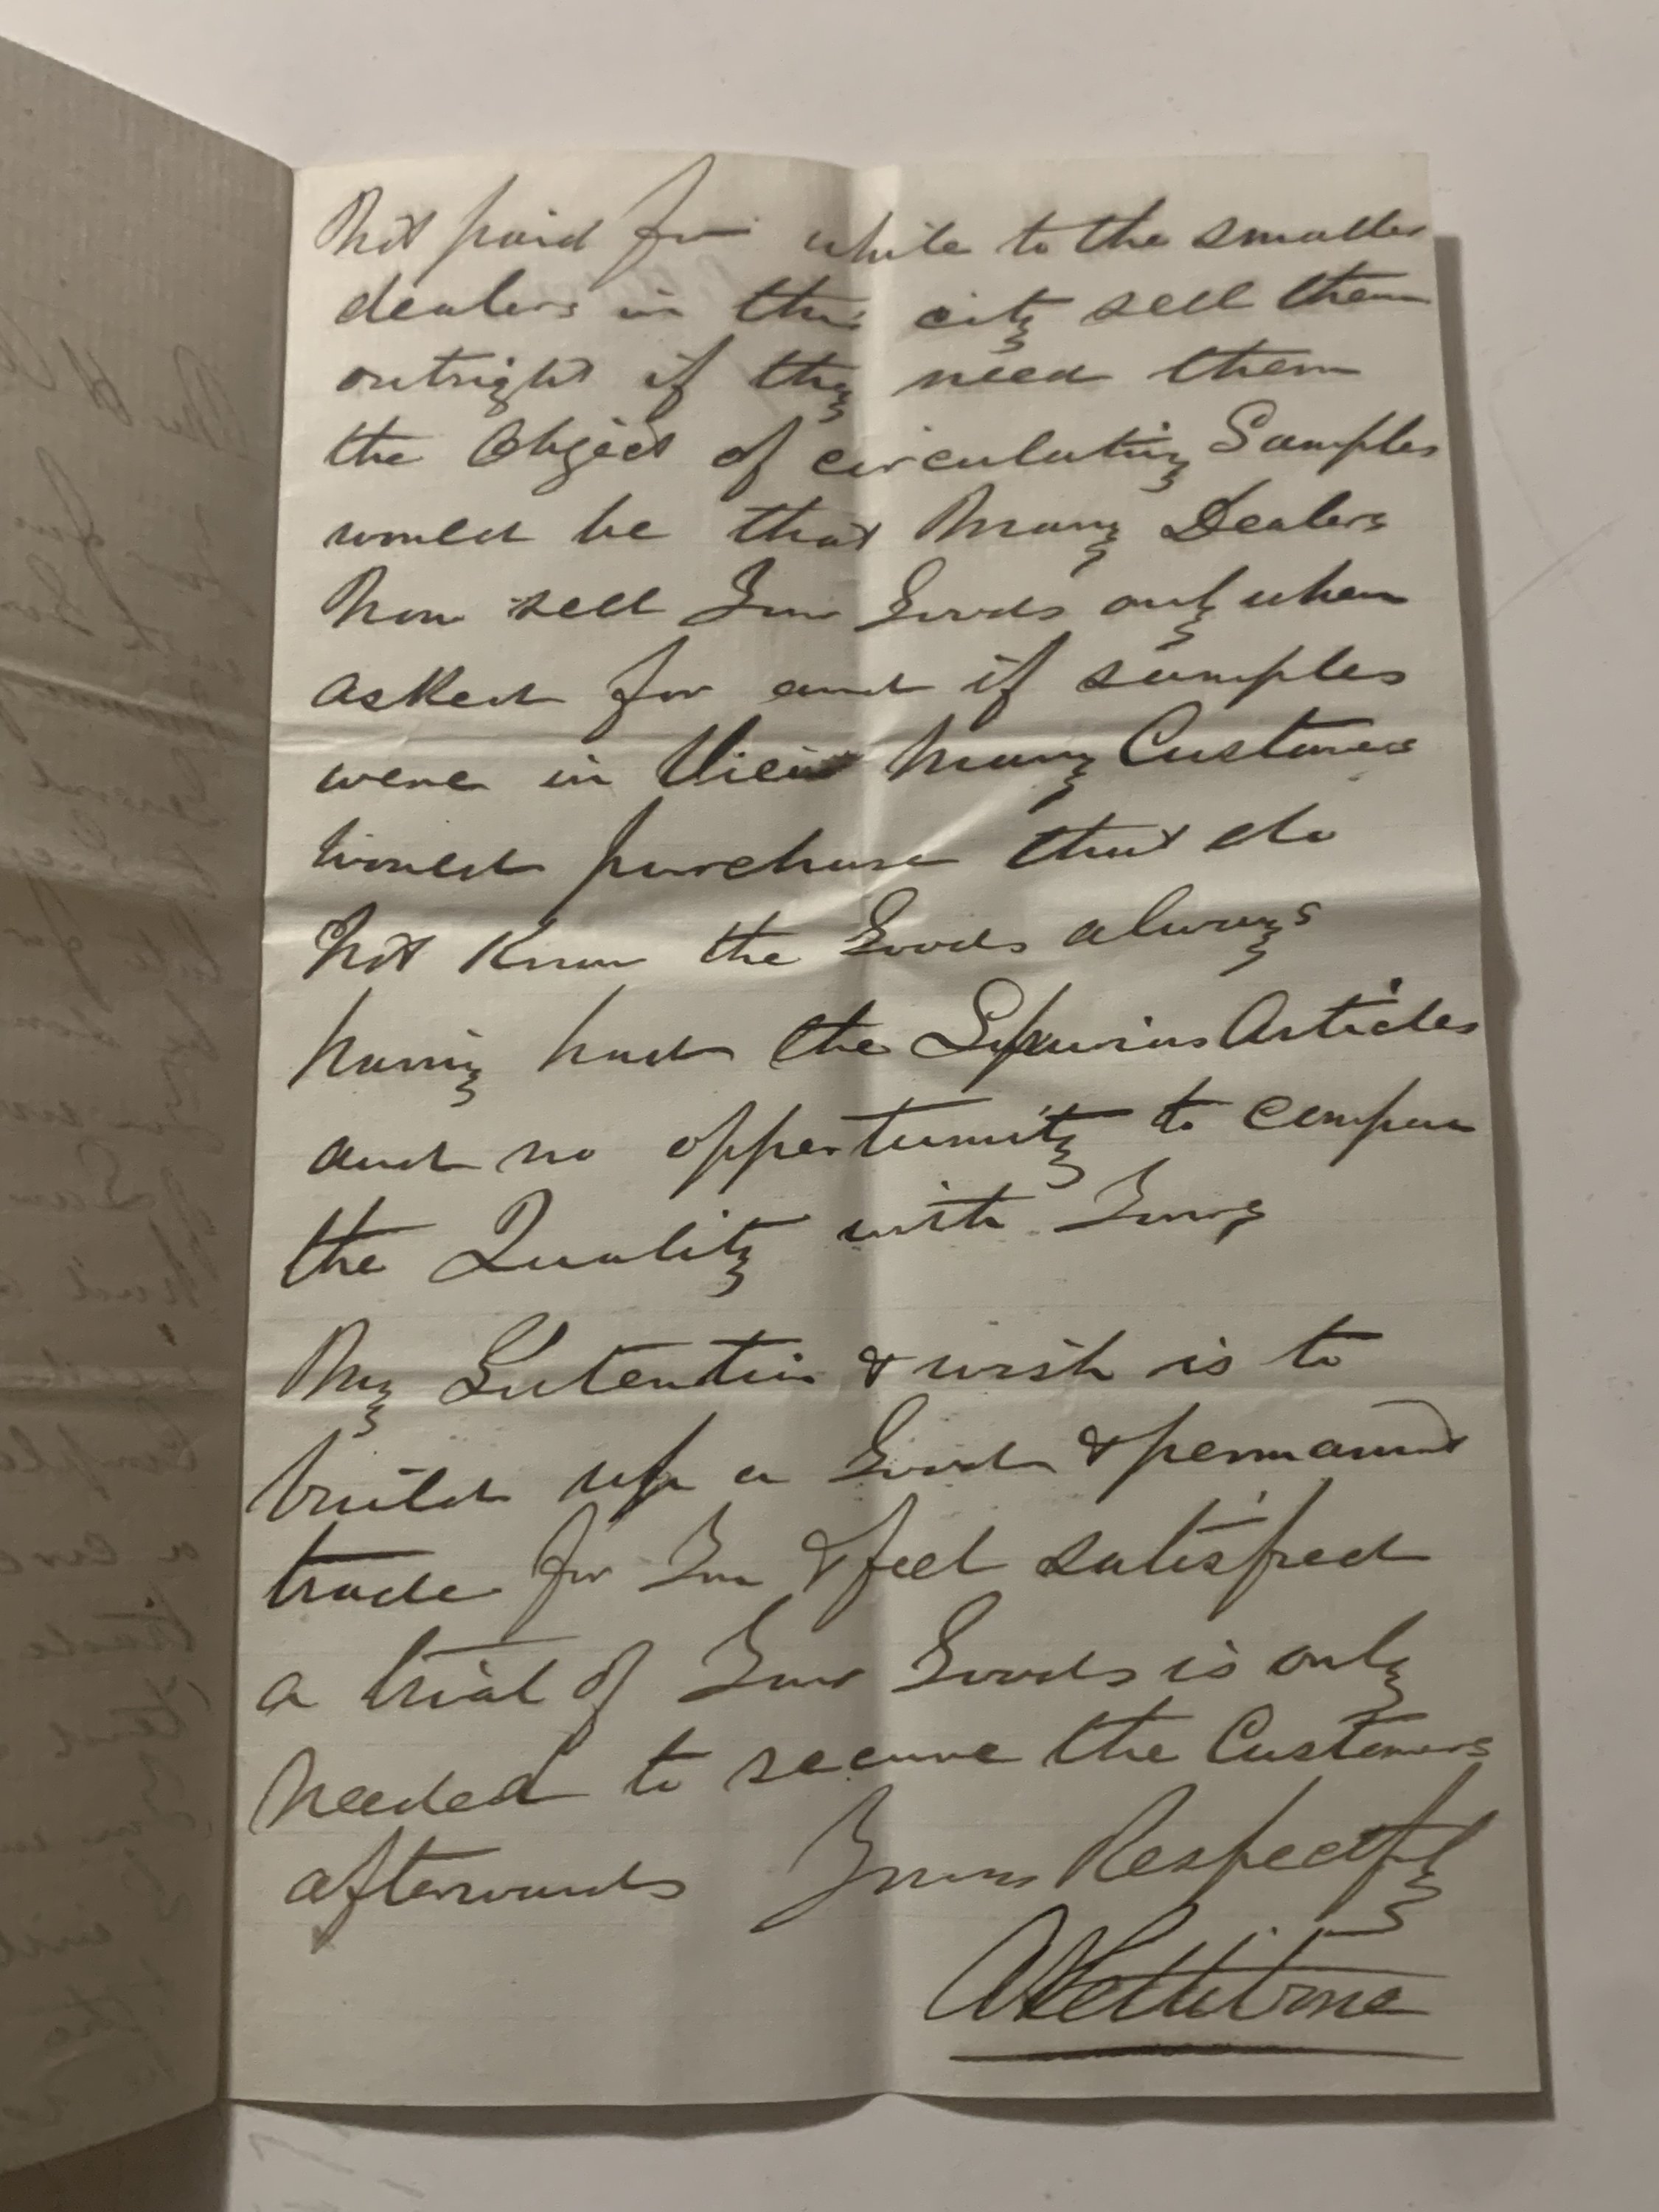 Not paid for while to the smaller
dealers in this city sell them
outright if they need them
the Object of circulating Samples
would be that Many Dealers
Now sell Your Goods only when
asked for and if samples
were in View Many Customers
Would purchase that do
Not Know the Goods always
having had the Spurious Articles
and no oppertunity to compare
the Quality with Yours
My Intention & wish is to
build up a Good & permanent
trade for You & feel satisfied
a trial of Your Goods is only
Needed to secure the Customers
afterwards Yours Respectfully